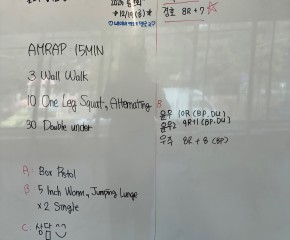 *12/19(금)*
경호 8R+7
AMRAP 15MIN
3 Wall Walk
10 One Leg Squat, Alternating
30 Double under
B
윤우 10R(BP.DU)
윤우2 9R+1(BP.DU)
우주 8R+8(BP)
A: Box Pistol
B: 5 Inch Worm, Jumping Lunge
×2 Single
C: 상담